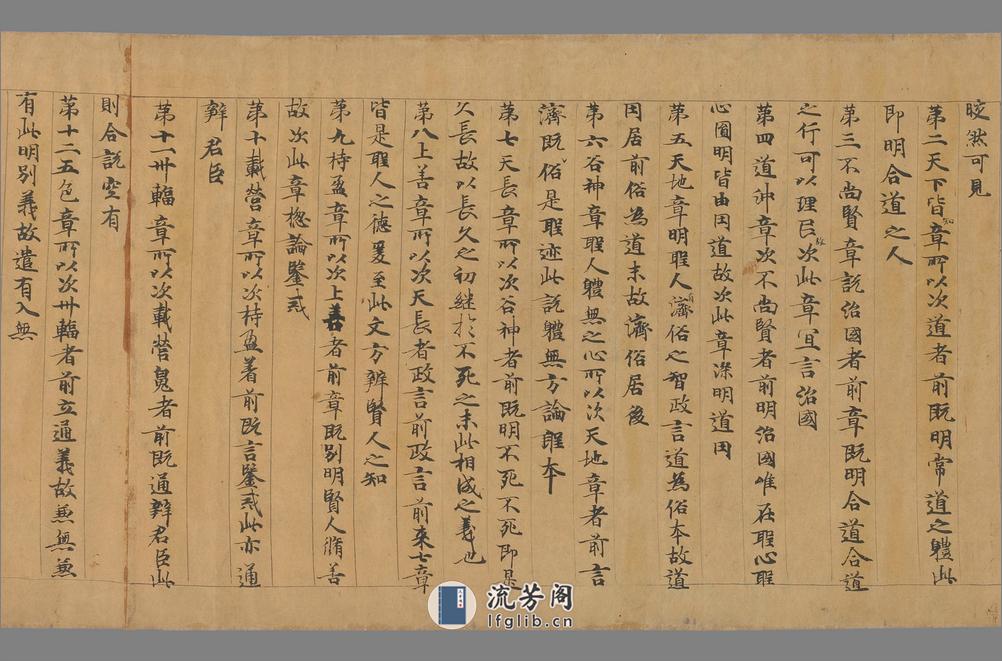 晈然可見
第二天下皆知章所以次道者前既明常道之體此
即明合道之人
第三不尚賢章説治國者前章既明合道合道
之行可以理民故次此章宜言治國
第四道沖章次不尚賢者前明治國唯在聖心聖
心圓明皆由因道故次此章深明道因
第五天地章明聖人濟俗之智政言道為俗本故道
因居前俗為道末故濟俗居後
第六谷神章聖人體無之心所以次天地章者前言
濟既俗是聖迹此説體無方論聖本
第七天長章所以次谷神者前既明不死不死即是
久長故以長久之初継於不死之末此相成之義也
第八上善章所以次天長者政言前政言前來七章
皆是聖人之德爰至此文方辨賢人之知
第九持盈章所以次上善者前章既別明賢人脩善
故次此章惣論鑒戒
第十載營章所以次持盈者前既言鑒戒此亦通
辨君臣
第十一卅輻章所以次載營魄者前既通辨君臣此
則合説空有
第十二五色章所以次卅輻者前立通義故兼無兼
有此明別義故遣有入無
流芳阁
lfglib.cn